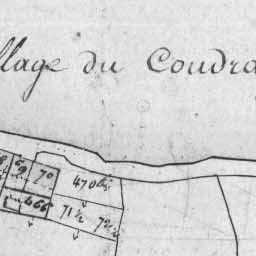 llage du Coudra
69 70 470 bis
466 71½ 72½